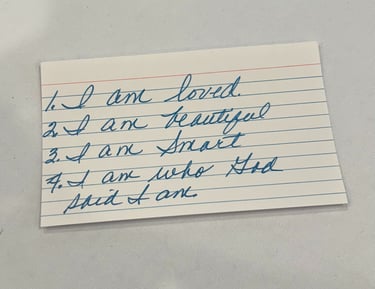 1. I am loved.
2. I am beautiful
3. I am Smart
4. I am who God
said I am.